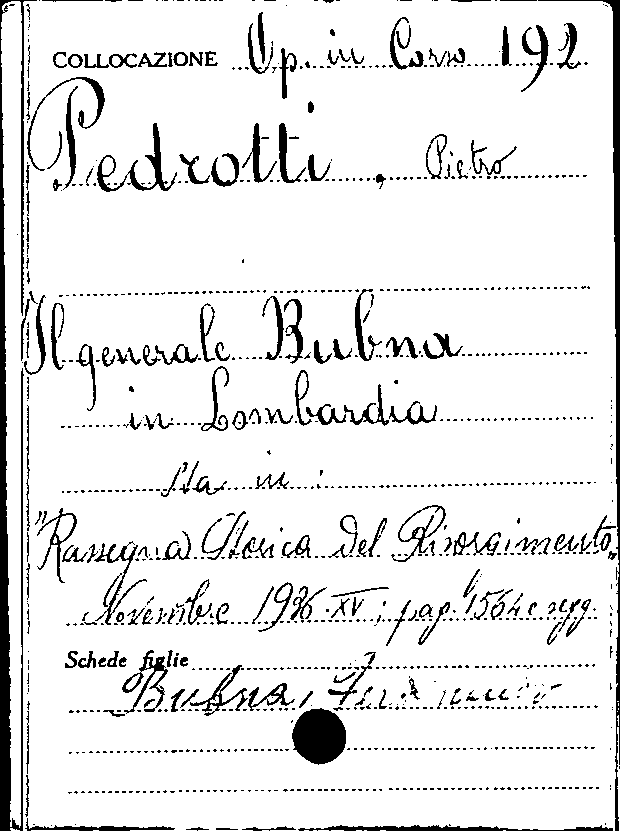 COLLOCAZIONE Op. in Corso 192
Pedrotti, Pietro
Il generale Bubna
in Lombardia
sta in:
"Rassegna Storica del Risorgimento"
Novembre 1936-XV; pag. 1564 e segg.
Schede figlie
Bubna, Ferdinando